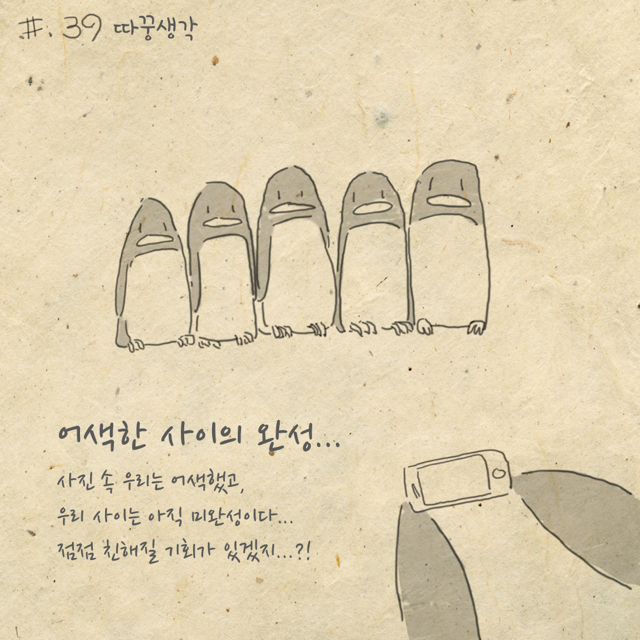 #. 39 따꿍생각
어색한 사이의 완성...
사진 속 우리는 어색했고,
우리 사이는 아직 미완성이다...
점점 친해질 기회가 있겠지...?!